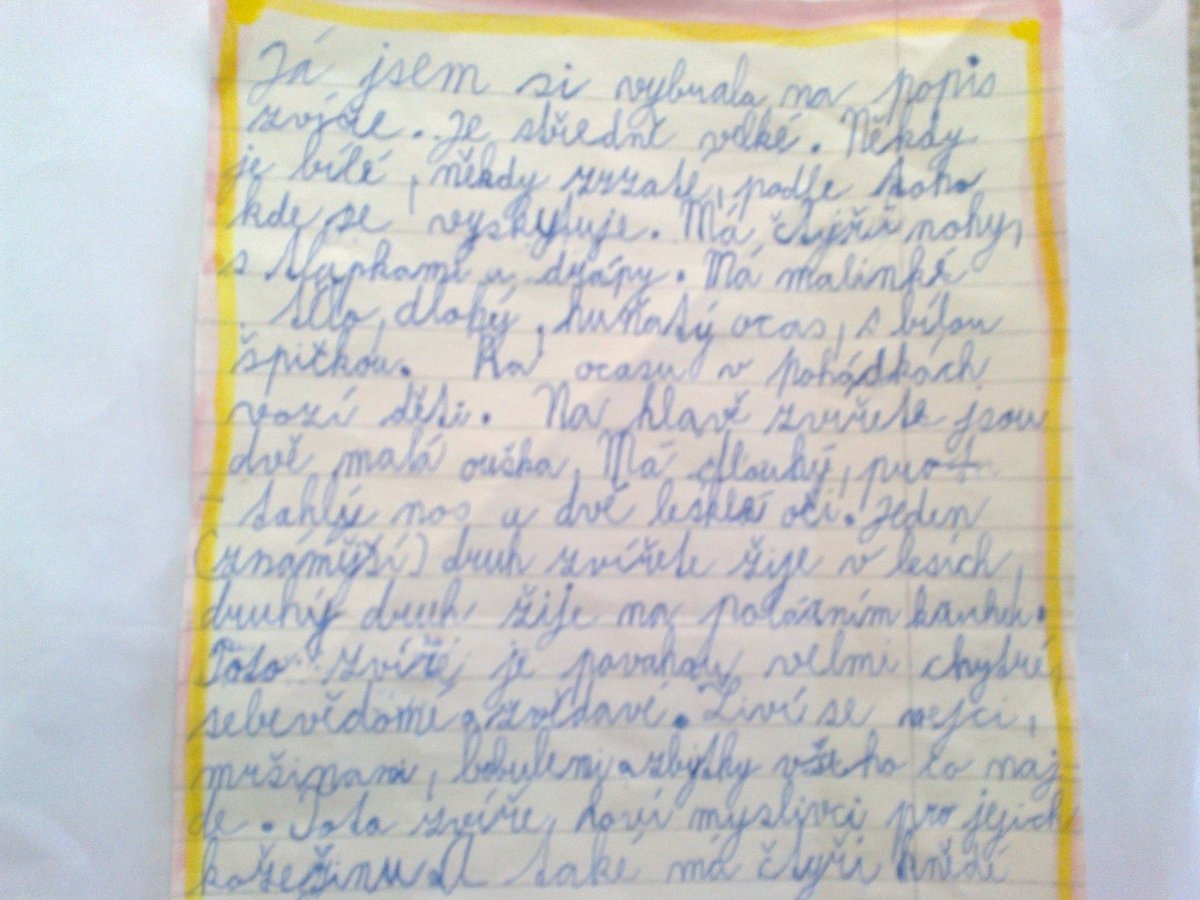 Já jsem si vybrala na popis
zvíře. Je středně velké. Někdy
je bílé, někdy zrzaté, podle toho
kde se vyskytuje. Má čtyři nohy,
s tlapkami a drápy. Má malinké
tělo, dlohý, huňatý ocas, s bílou
špičkou. Na ocasu v pohádkách
vozí děti. Na hlavě zvířete jsou
dvě malá ouška. Má dlouhý, pro
táhlý nos a dvě lesklé oči. Jeden
(známější) druh zvířete žije v lesích,
druhý druh žije na polárním kruhu.
Toto zvíře je povahou velmi chytré,
sebevědomé a zvědavé. Živí se vejci,
mršinami, bobulemi a zbytky všeho co naj
de. Toto zvíře loví myslivci pro jejich
kožešinu. A také má čtyři hnědé